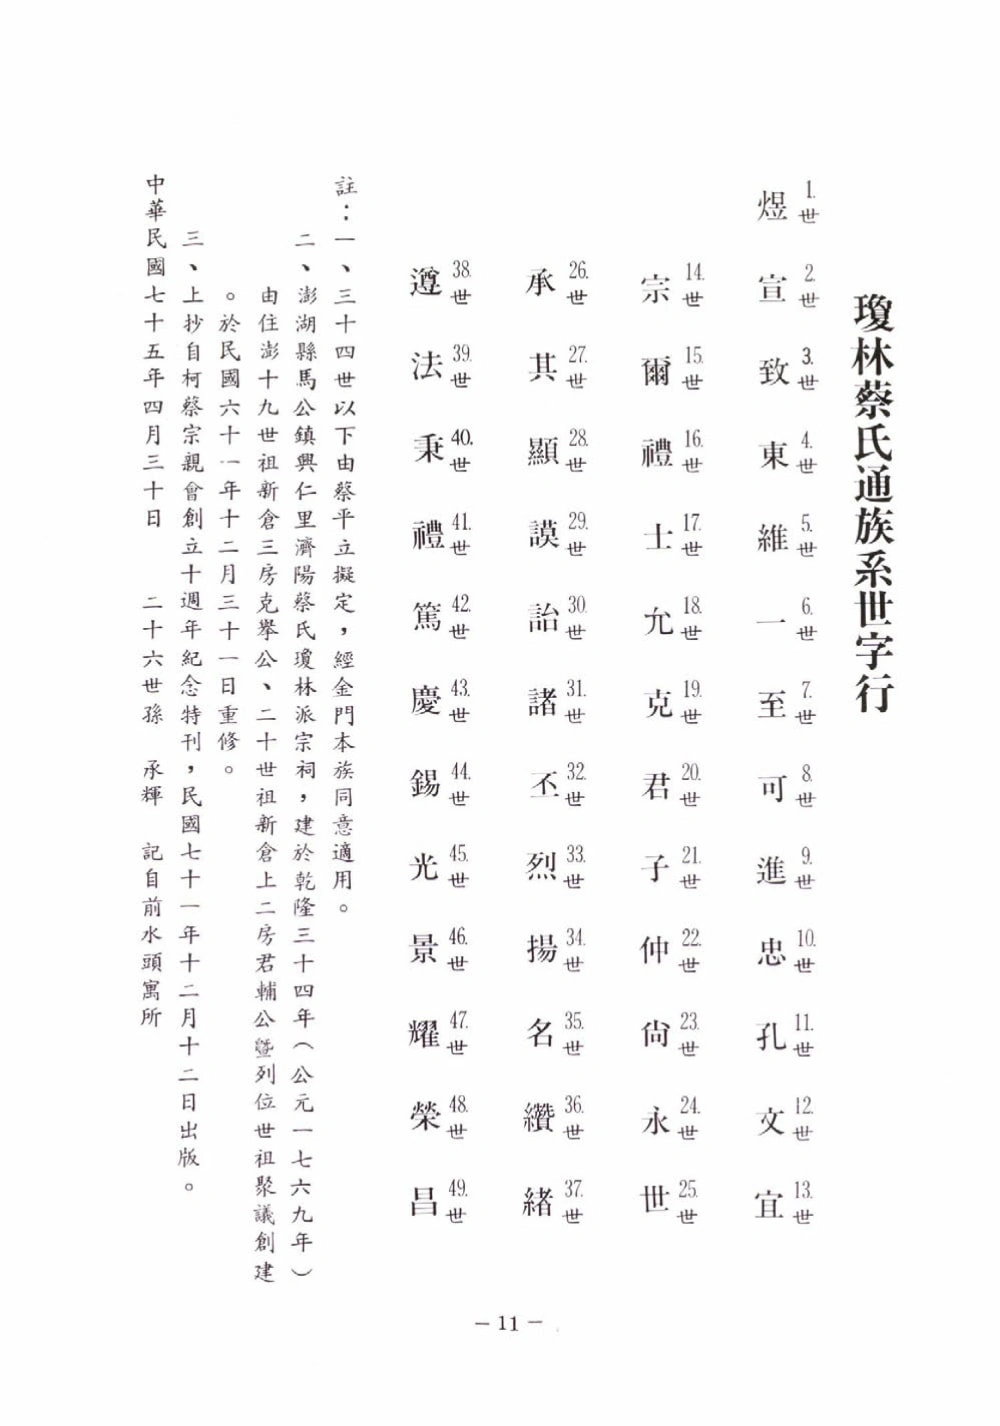 瓊林蔡氏通族系世字行
1.世 煜 2.世 宣 3.世 致 4.世 東 5.世 維 6.世 一 7.世 至 8.世 可 9.世 進 10.世 忠 11.世 孔 12.世 文 13.世 宜
14.世 宗 15.世 爾 16.世 禮 17.世 士 18.世 允 19.世 克 20.世 君 21.世 子 22.世 仲 23.世 尙 24.世 永 25.世 世
26.世 承 27.世 其 28.世 顯 29.世 謨 30.世 詒 31.世 諸 32.世 丕 33.世 烈 34.世 揚 35.世 名 36.世 纘 37.世 緒
38.世 遵 39.世 法 40.世 秉 41.世 禮 42.世 篤 43.世 慶 44.世 錫 45.世 光 46.世 景 47.世 耀 48.世 榮 49.世 昌
註：一、三十四世以下由蔡平立擬定，經金門本族同意適用。
二、澎湖縣馬公鎮興仁里濟陽蔡氏瓊林派宗祠，建於乾隆三十四年（公元一七六九年）
由住澎十九世祖新倉三房克擧公、二十世祖新倉上二房君輔公暨列位世祖聚議創建
。於民國六十一年十二月三十一日重修。
三、上抄自柯蔡宗親會創立十週年紀念特刊，民國七十一年十二月十二日出版。
中華民國七十五年四月三十日 二十六世孫 承輝 記自前水頭寓所
－11－